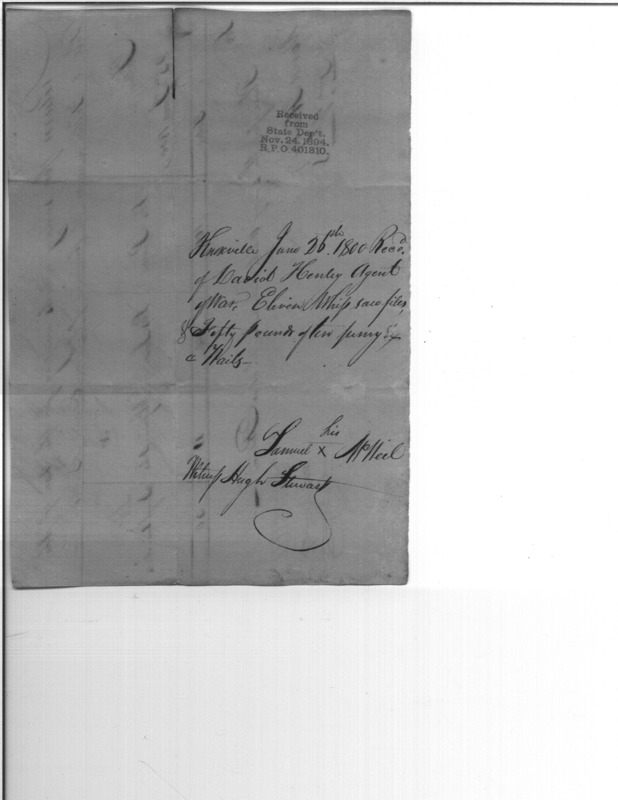 Received
from
State Dep't.
Nov. 24. 1894.
R P O 401310.
Knoxville June 26th. 1800 Reed.
of David Henley Agent
of War, Eleven Whip saw files,
& Fifty pounds of ten penny
Nails
his
Samuel x McNeil
Witness Hugh Stewart